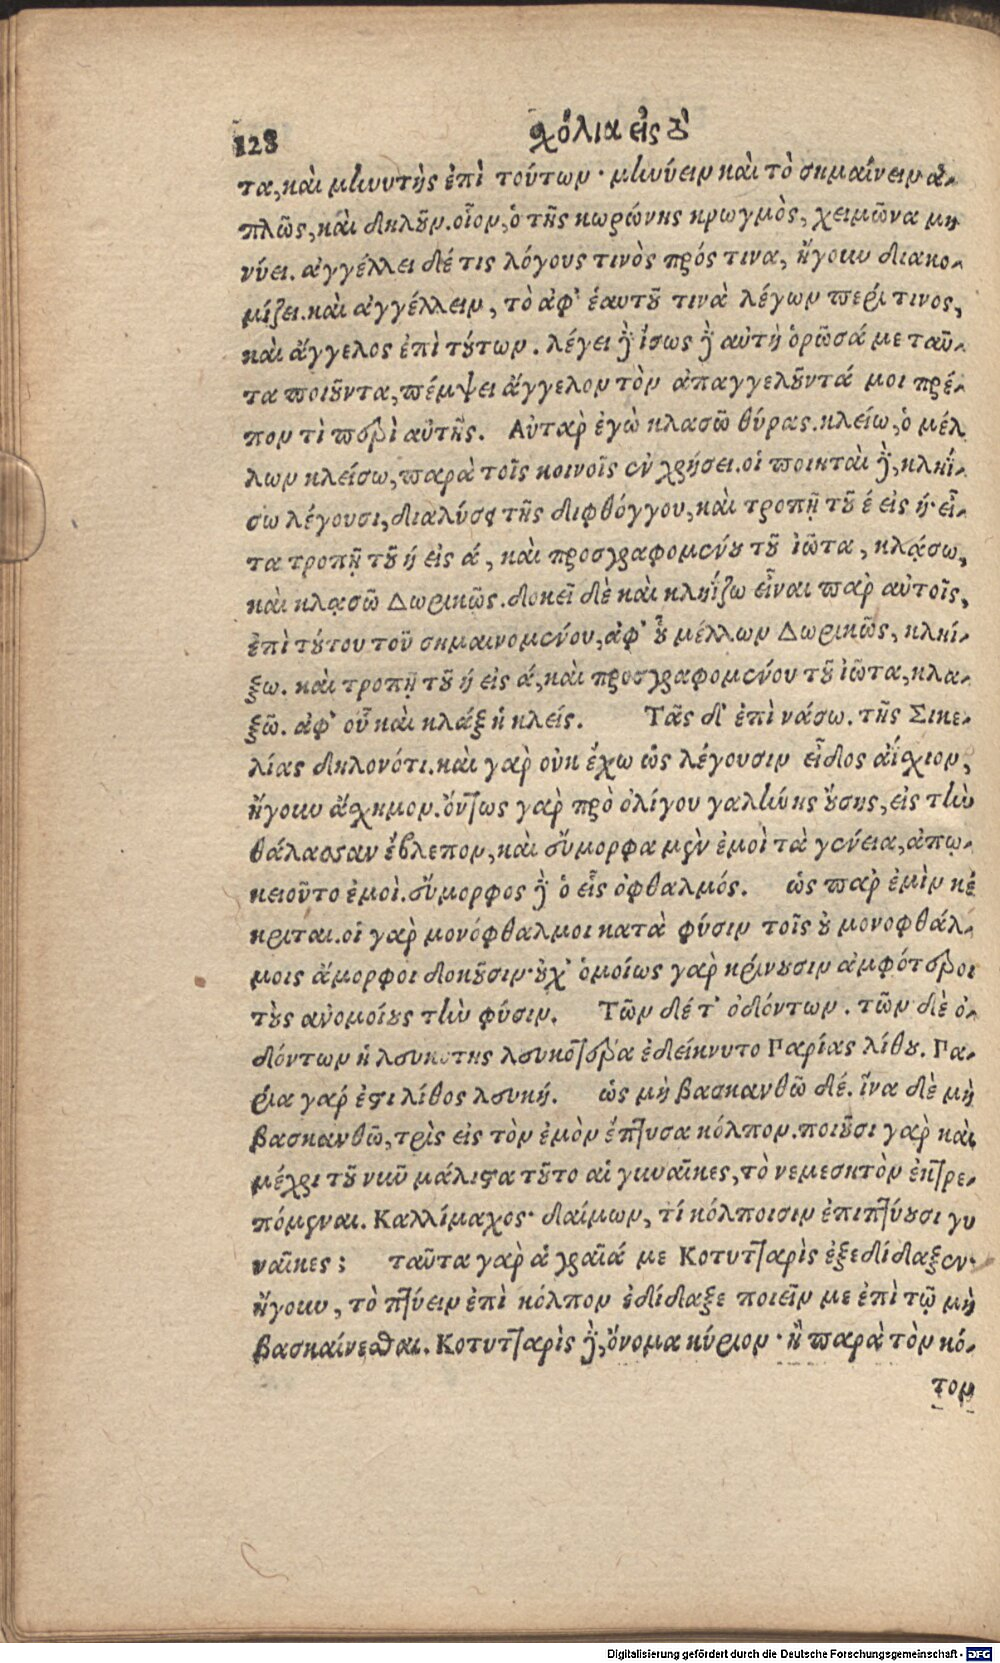 128 σχόλια εἰς τὸ
τα, καὶ μηνυτὴς ἐπὶ τούτων· μηνύειν καὶ τὸ σημαίνειν ἁ-
πλῶς, καὶ δηλοῦν. οἷον, ὁ τῆς κωρώνης κρωγμὸς, χειμῶνα μη
νύει. ἀγγέλλει δέ τις λόγους τινὸς πρός τινα, ἤγουν διακο-
μίζει. καὶ ἀγγέλλειν, τὸ ἀφ' ἑαυτοῦ τινὰ λέγων περί τινος,
καὶ ἄγγελος ἐπὶ τούτων. λέγει δὲ ἴσως δὲ αὐτὴ ὁρῶσά με ταῦ-
τα ποιοῦντα, πέμψει ἄγγελον τὸν ἀπαγγελοῦντά μοι πρέ-
πον τὶ περὶ αὐτῆς. Αὐτὰρ ἐγὼ κλασῶ θύρας. κλείω, ὁ μέλ
λων κλείσω, παρὰ τοῖς κοινοῖς ἐν χρήσει. οἱ ποιηταὶ δὲ, κληΐ-
σω λέγουσι, διαλύσει τῆς διφθόγγου, καὶ τροπῇ τοῦ έ εἰς ή· εἶ-
τα τροπῇ τοῦ ή εἰς ά, καὶ προσγραφομένου τοῦ ἰῶτα, κλᾴσω,
καὶ κλᾳσῶ Δωρικῶς. δοκεῖ δὲ καὶ κληΐζω εἶναι παρ αὐτοῖς,
ἐπὶ τούτου τοῦ σημαινομένου, ἀφ' οὗ μέλλων Δωρικῶς, κληί-
ξω. καὶ τροπῇ τοῦ ή εἰς ά, καὶ προσγραφομένου τοῦ ἰῶτα, κλα-
ξῶ. ἀφ' οὗ καὶ κλάξ ἡ κλείς. Τᾶς δ' ἐπὶ νάσω. τῆς Σικε-
λίας δηλονότι. καὶ γὰρ οὐκ ἔχω ὡς λέγουσιν εἶδος αἴσχιον,
ἤγουν ἄσχημον. ὄντως γὰρ πρὸ ὀλίγου γαλήνης οὔσης, εἰς τὴν
θάλασσαν ἔβλεπον, καὶ εὔμορφα μὲν ἐμοὶ τὰ γένεια, ἀπῳ-
κειοῦτο ἐμοὶ. εὔμορφος δὲ ὁ εἷς ὀφθαλμός. ὡς παρ ἐμὶν κέ
κριται. οἱ γὰρ μονόφθαλμοι κατὰ φύσιν τοῖς οὐ μονοφθάλ-
μοις ἄμορφοι δοκοῦσιν· οὐχ' ὁμοίως γὰρ κρίνουσιν ἀμφότεροι
τοὺς ἀνομοίους τὴν φύσιν. Τῶν δέ τ' ὀδόντων. τῶν δὲ ὀ-
δόντων ἡ λευκότης λευκοτέρα ἐδείκνυτο Παρίας λίθου. Πα-
ρία γάρ ἐστι λίθος λευκή. ὡς μὴ βασκανθῶ δέ. ἵνα δὲ μὴ
βασκανθῶ, τρὶς εἰς τὸν ἐμὸν ἔπτυσα κόλπον. ποιοῦσι γὰρ καὶ
μέχρι τοῦ νῦν μάλιστα τοῦτο αἱ γυναῖκες, τὸ νεμεσητὸν ἐκτρε-
πόμεναι. Καλλίμαχος· δαίμων, τί κόλποισιν ἐπιπτύουσι γυ
ναῖκες; ταῦτα γὰρ ἁ γραῖά με Κοτυτταρὶς ἐξεδίδαξεν·
ἤγουν, τὸ πτύειν ἐπὶ κόλπον ἐδίδαξε ποιεῖν με ἐπὶ τῷ μὴ
βασκαίνεσθαι. Κοτυτταρὶς δὲ, ὄνομα κύριον· ἢ παρὰ τὸν κό-
τον
Digitalisierung gefördert durch die Deutsche Forschungsgemeinschaft - DFG